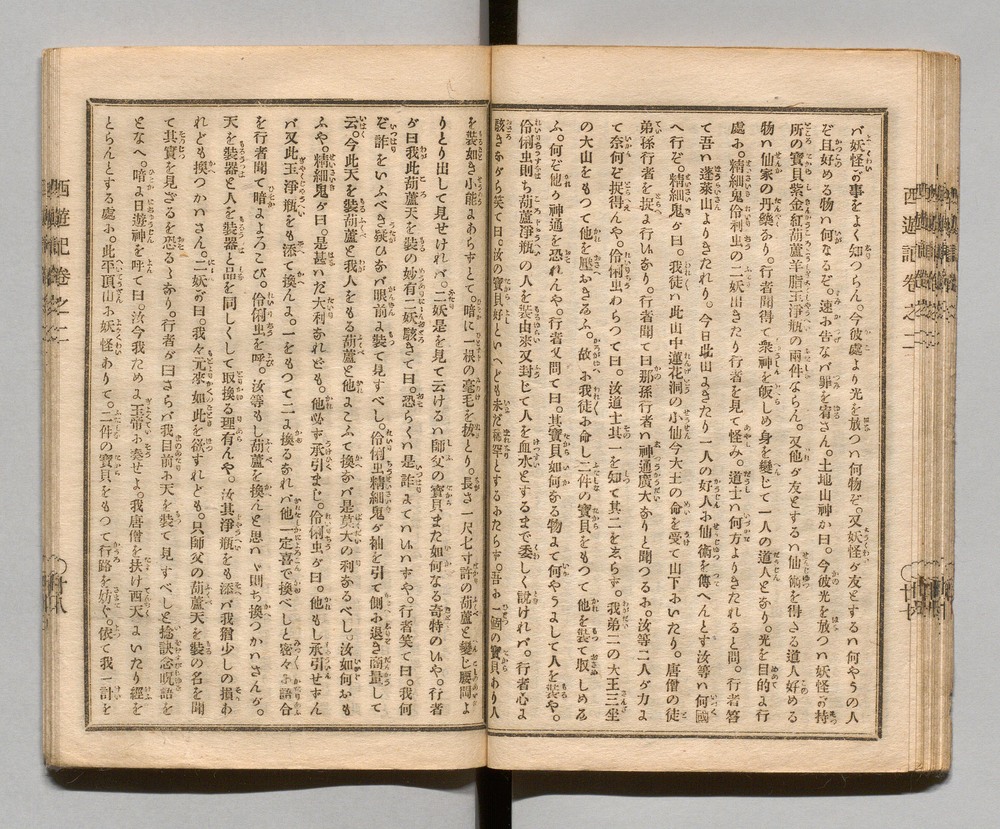 バ妖怪の事をよく知つらん。今彼處より光を放つハ何物ぞ。又妖怪が友とするハ何やうの人
ぞ且好める物ハ何なるぞ。速お告なバ罪を宥さん。土地山神か曰。今彼光を放つハ妖怪が持
所の寶貝紫金紅葫蘆羊脂玉淨瓶の兩件ならん。又他が友とするハ仙術を得さる道人好める
物ハ仙家の丹藥あり。行者聞得て衆神を皈しめ身を變じて一人の道人となり。光を目的よ行
處お。精細鬼伶利虫の二妖出きたり行者を見て怪み。道士ハ何方よりきたれると問。行者答
て吾ハ蓬萊山よりきたれり。今日此山よきたり一人の好人お仙術を傳へんとす汝等ハ何國
へ行ぞ。精細鬼が曰。我徒ハ此山中蓮花洞の小仙今大王の命を受て山下おいたり。唐僧の徒
弟孫行者を捉よ行ハあり。行者聞て曰那孫行者ハ神通廣大ありと聞つるお。汝等二人が力よ
て奈何ぞ捉得んや。伶俐虫わらつて曰。汝道士其一を知て其二を玄らず。我弟二の大王三坐
の大山をもつて他を壓おきるふ。故お我徒お命し二件の寶貝をもつて他を裝て取しめる
ふ。何ぞ他り神通を恐れんや。行者又問て曰。其寶貝如何ある物よて何やうよして人を裝や。
伶俐虫則ち葫蘆淨瓶の人を裝由來又封じて人を血水とするまで委しく說けれバ。行者心よ
駭きあがら笑て曰。汝の寶貝好といへども未だ稀罕とするおたらず。吾お一個の寶貝あり人
を裝如き小能よあらすとて。暗に一根の毫毛を拔とり。長さ一尺七寸許の葫蘆と變じ腰間よ
りとり出して見せけれバ。二妖是を見て云けるハ師父の寶貝また如何なる奇特のハや。行者
が曰我此葫蘆天を裝の妙有二妖駭きて曰。恐らくハ是詐よてハハすや。行者笑て曰。我何
ぞ詐をいふべき疑ひあバ眼前よ裝て見すべし。伶俐虫精細鬼が袖を引て側お退き商量して
云。今此天を裝葫蘆と我人をもる葫蘆と他よこふて換あバ是莫大の利あるべし。汝如何おも
ふや。精細鬼が曰。是甚ハだ大利あれども。他必ず承引せまじ。伶俐虫が曰。他もし承引せずん
バ又此玉淨瓶をも添て換んよ。一をもつて二よ換るあれバ他一定喜で換べしと密々お語合
を行者聞て暗よよろこび。伶俐虫を呼。汝等もし葫蘆を換んと思ハゞ則ち換つかハさんが。
天を裝器と人を裝器と品を同しくして取換る理有んや。汝其淨瓶をも添バ我猶少しの損わ
れども換つかハさん。二妖が曰。我々元來如此を欲すれども。只師父の葫蘆天を裝の名を聞
て其實を見ざるを恐るゝあり。行者が曰さらバ我目前お天を裝て見すべしと捻訣念呪語を
となへ。暗よ日游神を呼て曰。汝今我ためよ玉帝お奏せよ。我唐僧を扶け西天よいたり經を
とらんとする處お。此平頂山お妖怪ありて。二件の寶貝をもつて行路を妨ぐ。依て我一計を
西遊記卷之二
西遊記卷之二